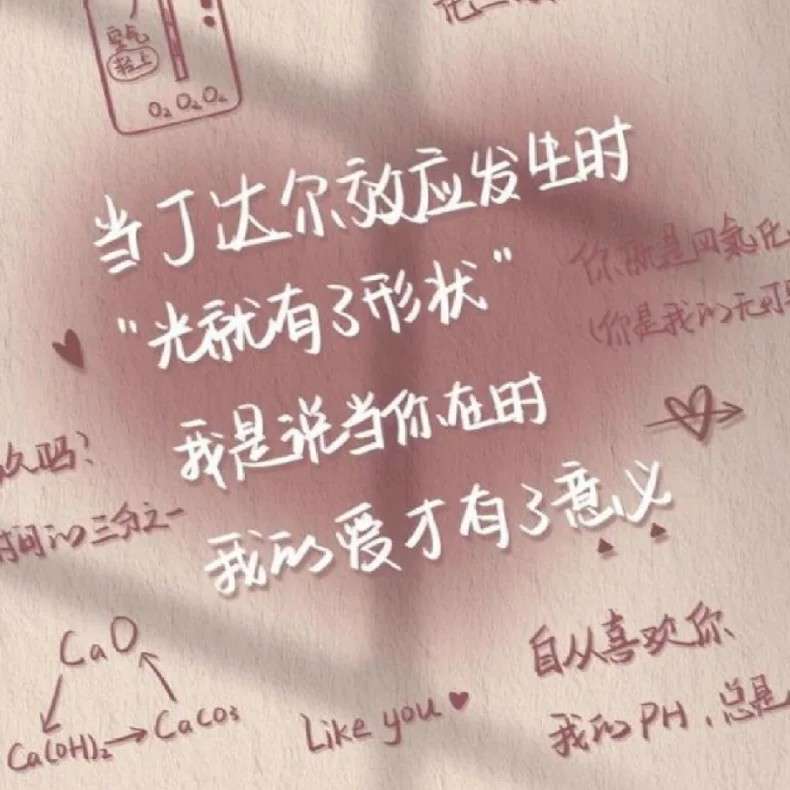 空气
O₂ O₂ O₂
当丁达尔效应发生时
"光就有了形状"
你就是四氯化
(你是我的无可
我是说当你在时
久吗?
时间的三分之一
我的爱才有了意义
CaO
Ca(OH)₂→CaCO₃
Like you
自从喜欢你
我的PH,总是